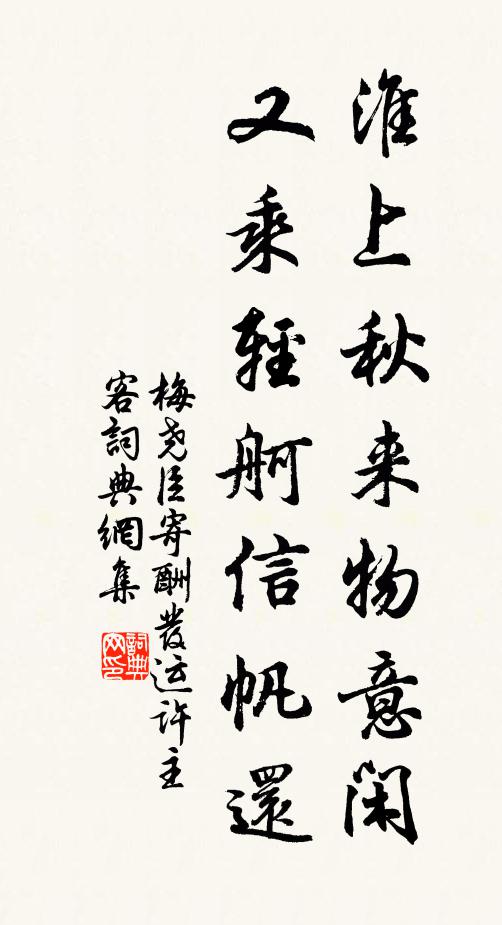 淮上秋来物意闲
又乘輕舸信帆還
梅堯臣寄酬發运許主
客詞典網集
詞典
网印